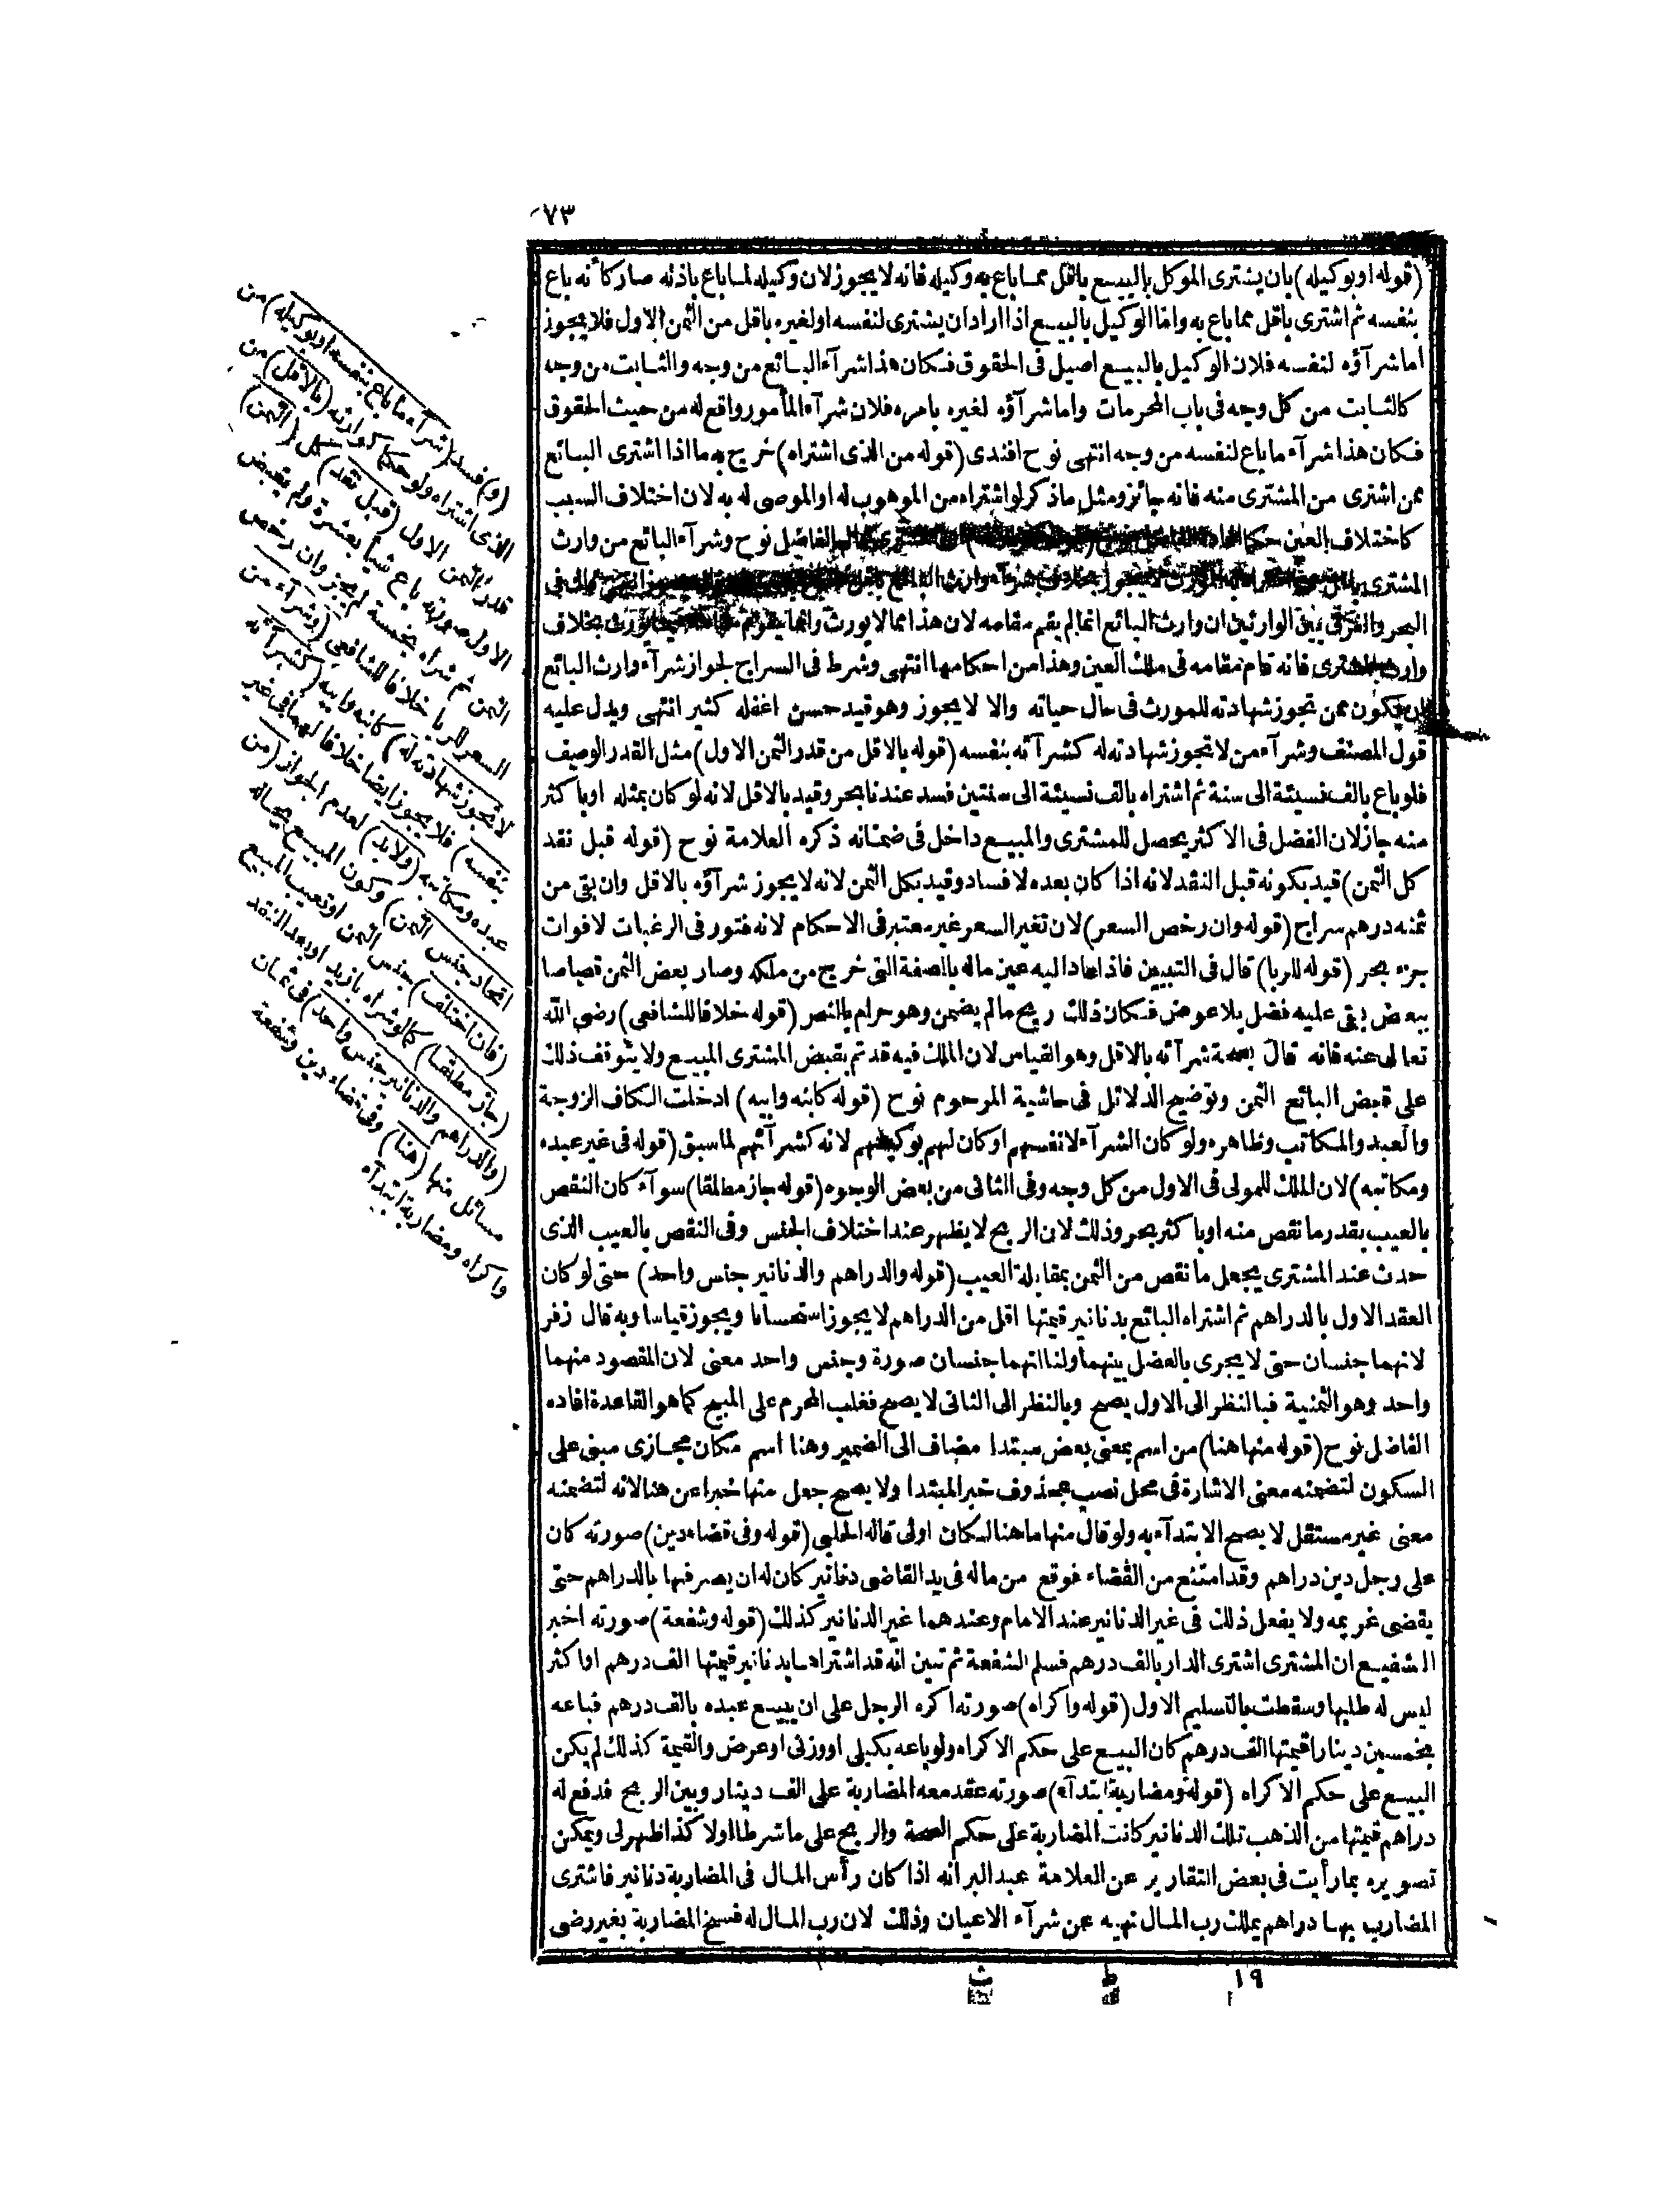 ٧٣
(قوله او بوكيله) بان يشترى الموكل بالبيع باقل مما باع به وكيله فانه لا يجوز لان وكيله لما باع باذنه صار كأنه باع
بنفسه ثم اشترى باقل مما باع به واما الوكيل بالبيع اذا اراد ان يشترى لنفسه او لغيره باقل من الثمن الاول فلا يجوز
اما شرآؤه لنفسه فلان الوكيل بالبيع اصيل فى الحقوق فكان هذا شرآء البائع من وجه والثابت من وجه
كالثابت من كل وجه فى باب المحرمات واما شرآؤه لغيره بامره فلان شرآء المأمور واقع له من حيث الحقوق
فكان هذا شرآء ما باع لنفسه من وجه انتهى نوح افندى (قوله من الذى اشتراه) خرج به ما اذا اشترى البائع
ممن اشترى من المشترى منه فانه جائز ومثل ما ذكر لو اشتراه من الموهوب له او الموصى له به لان اختلاف السبب
كاختلاف العين حكما الفاضل نوح وشرآء البائع من وارث
المشترى فى
البحر والفرق بين الوارثين ان وارث البائع انما لم يقم مقامه لان هذا مما لا يورث وانما يقوم بخلاف
وارث المشترى فانه قام مقامه فى ملك العين وهذا من احكامها انتهى وشرط فى السراج لجواز شرآء وارث البائع
ان يكون ممن تجوز شهادته للمورث فى حال حياته والا لا يجوز وهو قيد حسن اغفله كثير انتهى ويدل عليه
قول المصنف وشرآء من لا تجوز شهادته له كشرآئه بنفسه (قوله بالاقل من قدر الثمن الاول) مثل القدر الوصيف
فلو باع بالف نسيئة الى سنة ثم اشتراه بالف نسيئة الى سنتين فسد عندنا بحر وقيد بالاقل لانه لو كان بمثله او باكثر
منه جاز لان الفضل فى الاكثر يحصل للمشترى والمبيع داخل فى ضمانه ذكره العلامة نوح (قوله قبل نقد
كل الثمن) قيد بكونه قبل النقد لانه اذا كان بعده لا فساد وقيد بكل الثمن لانه لا يجوز شرآؤه بالاقل وان بقى من
ثمنه درهم سراج (قوله وان رخص السعر) لان تغير السعر غير معتبر فى الاحكام لانه فتور فى الرغبات لا فوات
جزء بحر (قوله للربا) قال فى التبيين فاذا عاد اليه عين ماله بالصفة التى خرج من ملكه وصار بعض الثمن قصاصا
ببعض بقى عليه فضل بلا عوض فكان ذلك ربح ما لم يضمن وهو حرام بالنص (قوله خلافا للشافعى) رضى الله
تعالى عنه فانه قال بصحة شرآئه بالاقل وهو القياس لان الملك فيه قد تم بقبض المشترى المبيع ولا يتوقف ذلك
على قبض البائع الثمن وتوضيح الدلائل فى حاشية المرحوم نوح (قوله كابنه وابيه) ادخلت الكاف الزوجة
والعبد والمكاتب وظاهره ولو كان الشرآء لانفسهم او كان لهم بوكيلهم لانه كشرآئهم لما سبق (قوله فى غير عبده
ومكاتبه) لان الملك للمولى فى الاول من كل وجه وفى الثانى من بعض الوجوه (قوله جاز مطلقا) سوآء كان النقص
بالعيب بقدر ما نقص منه او باكثر بحر وذلك لان الربح لا يظهر عند اختلاف الجنس وفى النقص بالعيب الذى
حدث عند المشترى يجعل ما نقص من الثمن بمقابلة العيب (قوله والدراهم والدنانير جنس واحد) حتى لو كان
العقد الاول بالدراهم ثم اشتراه البائع بدنانير قيمتها اقل من الدراهم لا يجوز استحسانا ويجوز قياسا وبه قال زفر
لانهما جنسان حتى لا يجرى بالفضل بينهما ولنا انهما جنسان صورة وجنس واحد معنى لان المقصود منهما
واحد وهو الثمنية فبالنظر الى الاول يصح وبالنظر الى الثانى لا يصح فغلب المحرم على المبيح كما هو القاعدة افاده
الفاضل نوح (قوله منها هنا) من اسم بمعنى بعض مبتدا مضاف الى الضمير وهنا اسم مكان مجازى مبنى على
السكون لتضمنه معنى الاشارة فى محل نصب بمحذوف خبر المبتدا ولا يصح جعل منها خبرا عن هنا لانه لتضمنه
معنى غير مستقل لا يصح الابتدآء به ولو قال منها ما هنا لكان اولى قاله الحلبى (قوله وفى قضاء دين) صورته كان
على رجل دين دراهم وقد امتنع من القضاء فوقع من ماله فى يد القاضى دنانير كان له ان يصرفها بالدراهم حتى
يقضى غريمه ولا يفعل ذلك فى غير الدنانير عند الامام وعندهما غير الدنانير كذلك (قوله وشفعة) صورته اخبر
الشفيع ان المشترى اشترى الدار بالف درهم فسلم الشفعة ثم تبين انه قد اشتراها بدنانير قيمتها الف درهم او اكثر
ليس له طلبها وسقطت بالتسليم الاول (قوله واكراه) صورته اكره الرجل على ان يبيع عبده بالف درهم فباعه
بخمسين دينارا قيمتها الف درهم كان البيع على حكم الاكراه ولو باعه بكيلى او وزنى او عرض والقيمة كذلك لم يكن
البيع على حكم الاكراه (قوله ومضاربة ابتدآء) صورته عقد معه المضاربة على الف دينار وبين الربح فدفع له
دراهم قيمتها من الذهب تلك الدنانير كانت المضاربة على حكم الصحة والربح على ما شرطا اولا كذا ظهر لى ويمكن
تصويره بما رأيت فى بعض التقارير عن العلامة عبد البر انه اذا كان رأس المال فى المضاربة دنانير فاشترى
المضارب بها دراهم يملك رب المال نهيه عن شرآء الاعيان وذلك لان رب المال له فسخ المضاربة بغير رضى
(و) فسد (شرآء ما باع بنفسه او بوكيله) من
الذى اشتراه ولو حكما كوارثه (بالاقل) من
قدر الثمن الاول (قبل نقد) كل (الثمن)
الاول صورته باع شيأ بعشرة ولم يقبض
الثمن ثم شراه بخمسة لم يجز وان رخص
السعر للربا خلافا للشافعى (وشرآء من
لا تجوز شهادته له) كابنه وابيه (كشرآئه
بنفسه) فلا يجوز ايضا خلافا لهما فى غير
عبده ومكاتبه (ولابد) لعدم الجواز (من
اتحاد جنس الثمن) وكون المبيع بحاله
(فان اختلف) جنس الثمن او تعيب المبيع
(جاز مطلقا) كما لو شراه بازيد او بعد النقد
(والدراهم والدنانير جنس واحد) فى ثمان
مسائل منها (هنا) وفى قضاء دين وشفعة
واكراه ومضاربة ابتدآء
١٩ ط ث